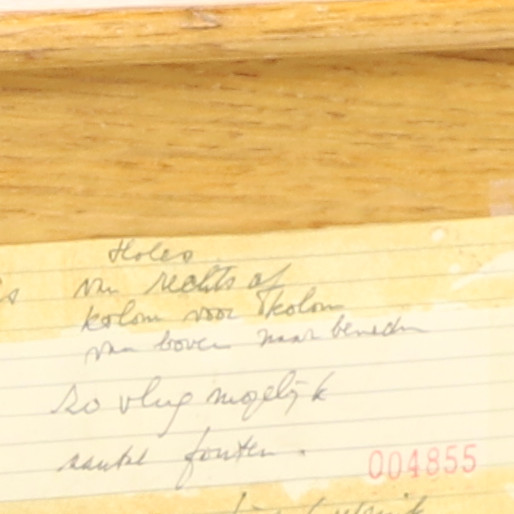 Holes
van rechts af
kolom voor kolom
van boven naar beneden
zo vlug mogelijk
aantal fouten.
004855